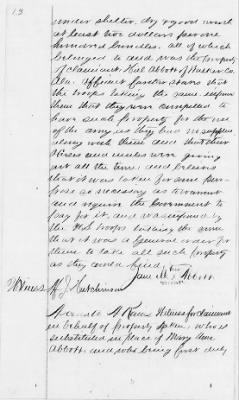 13
under shelter, dry & good worth
at least two dollars per one
hundred bundles. all of which
belonged to and was the property
of claimant Abbott of Walker Co.
Ala. Affiant further states that
the troops taking the same informed
them that they were compelled to
have such property for the use
of the army as they had no supplies
along with them and that their
Horses and mules were giving
out all the time, and believes
that it was taken for some pur-
pose as necessary as to warrant
and require the Government to
pay for it, and was informed by
the U.S. troops taking the same
that it was a General order for
them to take all such property
as they could find.
Abbott
Witness H. J. Hutchinson
Witness for claimant
in behalf of property who is
substituted in place of Mary Ann
Abbott, and who being first duly